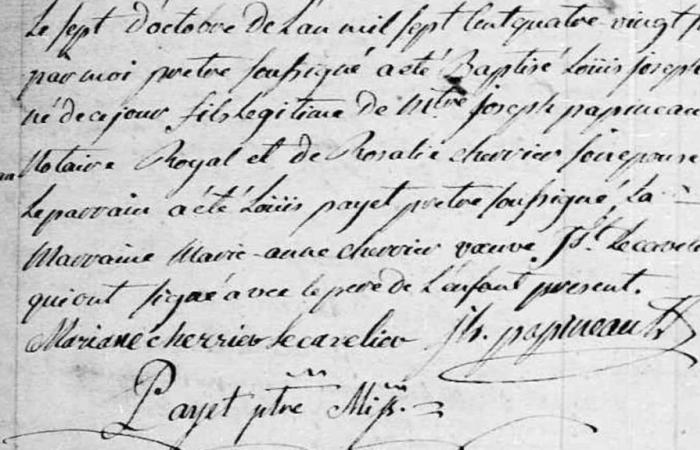 Le sept d'octobre de L'an mil sept Cent quatre vingt
par moi pretre soussigné a eté Baptisé Loüis joseph
né de ce jour fils Légitime de Mtre joseph papineau
Notaire Royal et de Rosalie cherrier son epouse
Le parrain a eté Loüis payet pretre soussigné, La
Marraine Marie-anne cherrier vœuve Jst. Lecavelie
qui ont signé avec le pere de L'enfant present.
Mariane cherrier Lecavelier Jh. papineau
Payet ptre Miss.